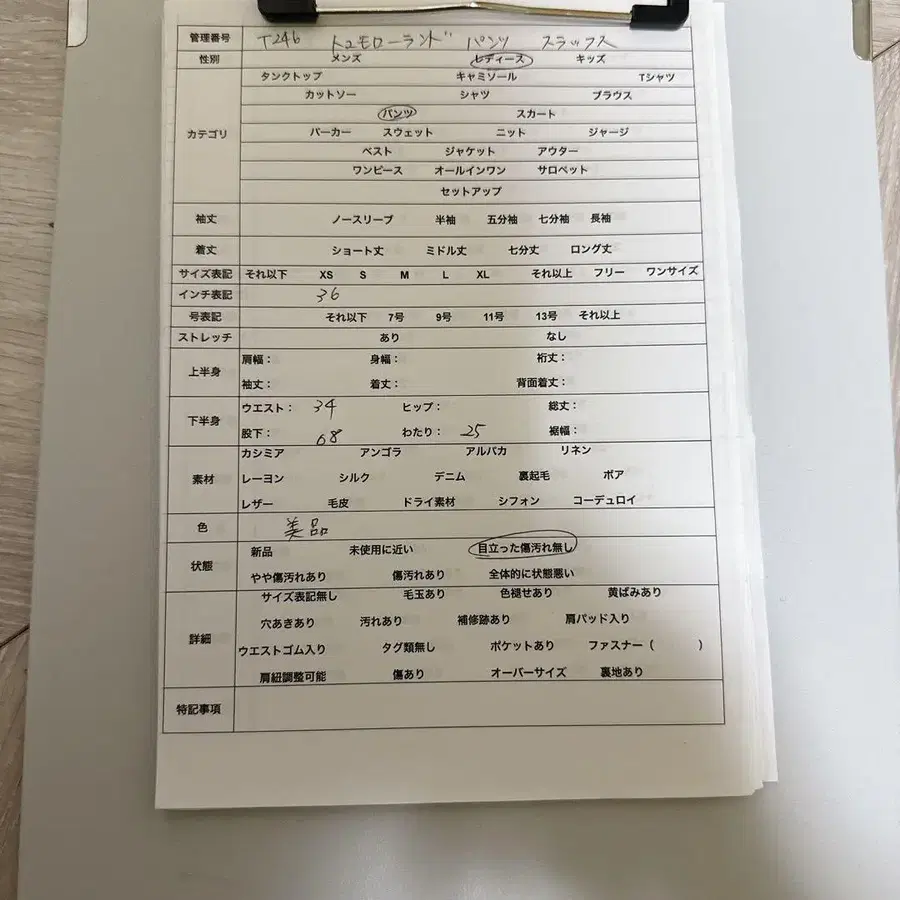 管理番号 T246 トゥモローランド パンツ スラックス
性別 メンズ レディース キッズ
タンクトップ キャミソール Tシャツ
カットソー シャツ ブラウス
パンツ スカート
カテゴリ パーカー スウェット ニット ジャージ
ベスト ジャケット アウター
ワンピース オールインワン サロペット
セットアップ
袖丈 ノースリーブ 半袖 五分袖 七分袖 長袖
着丈 ショート丈 ミドル丈 七分丈 ロング丈
サイズ表記 それ以下 XS S M L XL それ以上 フリー ワンサイズ
インチ表記 36
号表記 それ以下 7号 9号 11号 13号 それ以上
ストレッチ あり なし
上半身 肩幅： 身幅： 裄丈：
袖丈： 着丈： 背面着丈：
下半身 ウエスト： 34 ヒップ： 総丈：
股下： 68 わたり： 25 裾幅：
カシミア アンゴラ アルパカ リネン
素材 レーヨン シルク デニム 裏起毛 ボア
レザー 毛皮 ドライ素材 シフォン コーデュロイ
色 美品
状態 新品 未使用に近い 目立った傷汚れ無し
やや傷汚れあり 傷汚れあり 全体的に状態悪い
サイズ表記無し 毛玉あり 色褪せあり 黄ばみあり
詳細 穴あきあり 汚れあり 補修跡あり 肩パッド入り
ウエストゴム入り タグ類無し ポケットあり ファスナー（ ）
肩紐調整可能 傷あり オーバーサイズ 裏地あり
特記事項